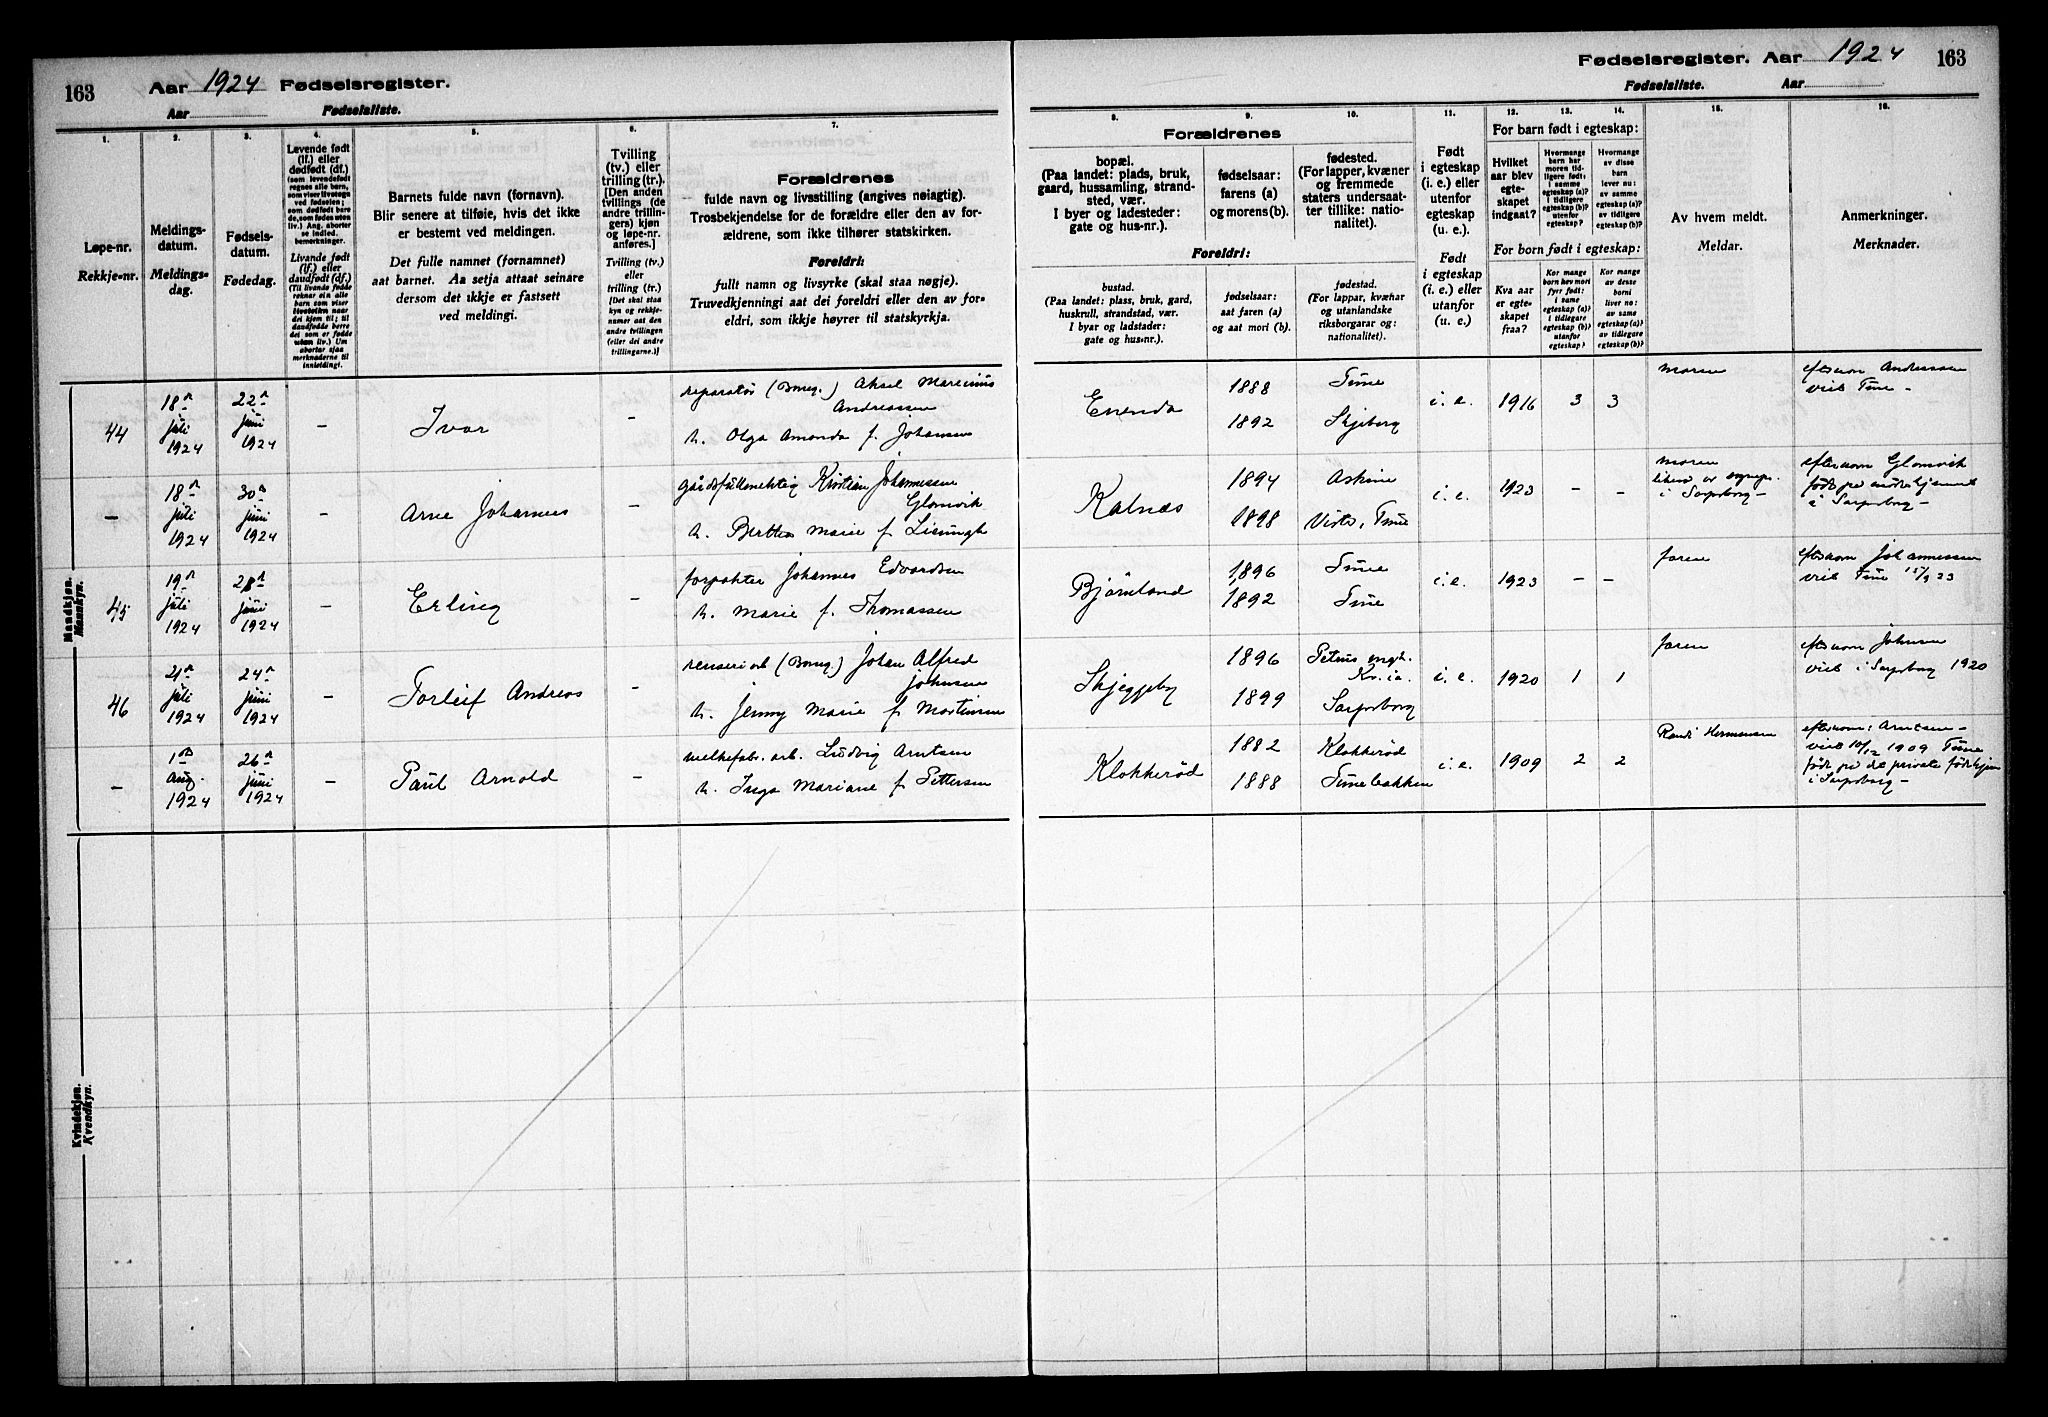 163
Aar 1924 Fødselsregister.
Aar Fødselsliste.
Fødselsregister. Aar 1924 163
Fødselsliste. Aar
1.
Løpe-nr.
Rekkje-nr.
2.
Meldings-
datum.
Meldings-
dag.
3.
Fødsels-
datum.
Fødedag.
4.
Levende født
(lf.) eller
dødfødt (df.)
(som levendefødt
regnes alle barn,
som viser livstegn
ved fødselen;
som dødfødt bare
de, som fødes uten
liv.) Ang. aborter
se indled.
bemerkninger.
Livande født
(lf.) eller
daudfødt (df.)
5.
Barnets fulde navn (fornavn).
Blir senere at tilføie, hvis det ikke
er bestemt ved meldingen.
Det fulle namnet (fornamnet)
aat barnet. Aa setja attaat seinare
dersom det ikkje er fastsett
ved meldingi.
6.
Tvilling
(tv.) eller
trilling (tr.)
[Den anden
tvillings (de
andre trillin-
gers) kjøn
og løpe-nr.
anføres.]
Tvilling (tv.)
eller
trilling (tr.)
[Det skal staa
kyn og rekkje-
numer aat den
andre tvillingen
(eller dei andre
trillingarne.)]
7.
Forældrenes
fulde navn og livsstilling (angives nøiagtig).
Trosbekjendelse for de forældre eller den av for-
ældrene, som ikke tilhører statskirken.
Foreldri:
fullt namn og livsyrke (skal staa nøgje).
Truvedkjenningi aat dei foreldri eller den av for-
eldri, som ikkje høyrer til statskyrkja.
Forældrenes
8.
bopæl.
(Paa landet: plads, bruk,
gaard, hussamling, strand-
sted, vær.
I byer og ladesteder:
gate og hus-nr.).
9.
fødselsaar:
farens (a)
og morens (b).
10.
fødested.
(For lapper, kvæner
og fremmede
staters undersaat-
ter tillike: natio-
nalitet).
Foreldri:
bustad.
(Paa landet: plass, bruk, gard,
huskrull, strandstad, vær.
I byar og ladstader:
gate og hus-nr.).
fødselsaar:
aat faren (a)
og aat mori (b).
fødestad.
(For lappar, kvænar
og utanlandske
riksborgarar og:
nationalitet).
11.
Født
i egteskap
(i. e.) eller
utenfor
egteskap
(u. e.).
Født
i egteskap
(i. e.) eller
utanfor
(u. e.).
For barn født i egteskap:
12.
Hvilket
aar blev
egte-
skapet
indgaat?
13.
Hvormange
barn har
moren tid-
ligere født:
i samme
egteskap (a)?
i tidligere
egteskap (b)?
utenfor
egteskap?
14.
Hvormange
av disse
barn
lever nu:
av samme
egteskap (a)?
av tidligere
egteskap (b)?
For born født i egteskap:
Kva aar
er egte-
skapet
fraa?
Kor mange
born hev mori
fyrr født:
i same
egteskap (a)?
i tidlegare
egteskap (b)?
utanfor
egteskap?
Kor mange
av desse
borni
liver no:
av same
egteskap (a)?
av tidlegare
egteskap (b)?
15.
Av hvem meldt.
Meldar.
16.
Anmerkninger.
Merknader.
Mandkjøn.
Mannkyn.
44 18de juli 1924 22de juni 1924 – Ivar – reparatør (Borreg.) Aksel Marenius
Andreassen
h. Olga Amanda f. Johansen
1888 1892 Tune Skjeberg i. e. 1916 3 3 moren
efternavn Andreassen
viet Tune –
– 18de juli 1924 30te juni 1924 – Arne Johannes – gårdsfullmektig Kristian Johannessen
Glomvik
h. Berthe Marie f.
Kalnæs 1894 1898 Askim Tune i. e. 1923 – – moren
i Sarpsborg –
efternavn Glomvik
i Sarpsborg –
45 19de juli 1924 juni 1924 – Erling – forpakter Johannes Edvardsen
h. Marie f. Thomassen
Bjørnland 1896 1892 Tune Tune i. e. 1923 – – faren
efternavn Johannessen
viet Tune 15/9 23
46 21de juli 1924 24de juni 1924 – Torleif Andreas – renseriarb. (Borreg.) Johan Alfred
Johnsen
h. Jenny Marie f. Martinsen
Skjeggeby 1896 1899 Petrus mgh.
Kr.ia. Sarpsborg i. e. 1920 1 1 faren
efternavn Johnsen
viet i Sarpsborg 1920
– 1ste aug. 1924 26de juni 1924 – Paul Arnold – melkefabr. arb. Ludvig Arntsen
h. Inga Mariane f. Pettersen
Klokkerød 1882 1888 Klokkerød Tunebakken i. e. 1909 2 2 Randi Hermansen
efternavn: Arntsen –
viet 10/12 1909 Tune
født på det private fødehjem
i Sarpsborg –
Kvindekjøn.
Kvendkyn.